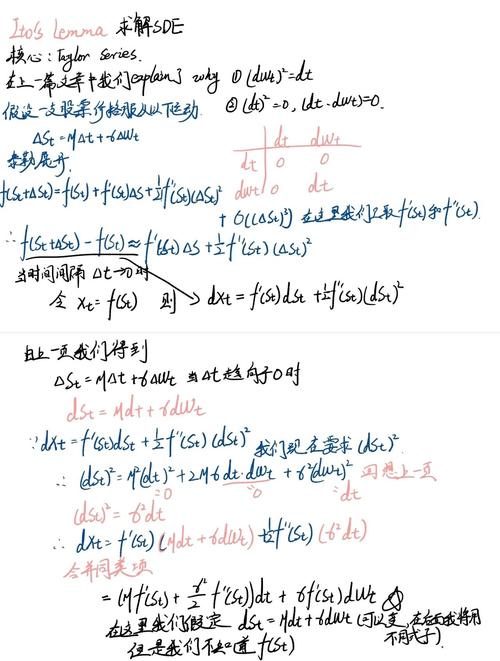 Ito's Lemma 求解SDE
核心:Taylor Series.
在上一篇文章中我们explain了 why ① (dWt)²=dt
② (dt)²=0, (dt·dWt)=0.
假设一支股票价格服从以下运动.
ΔSt=MΔt+σΔWt
dt dWt
dt 0 0
dWt 0 dt
泰勒展开.
f(St+ΔSt)=f(St)+f'(St)ΔS+½f''(St)(ΔSt)²
+ O((ΔSt)²) 在这里我们只取f'(St)和f''(St).
∴ f(St+ΔSt)-f(St)≈f'(St)ΔS+½f''(St)(ΔSt)²
当时间间隔 Δt→0时
令 Xt=f(St) 则 dXt=f'(St)dSt+½f''(St)(dSt)²
由上一页我们得到
ΔSt=MΔt+σΔWt 当Δt趋向于0时
dSt=Mdt+σdWt
∵dXt=f'(St)dSt+½f''(St)(dSt)² 我们现在要求(dSt)²
∴ (dSt)²=M²(dt)²+2Mσdt·dWt+σ²(dWt)² 回想上一页
=0 =0 =dt
(dSt)²=σ²dt
∴ dXt=f'(St)(Mdt+σdWt)+½f''(St)(σ²dt)
合并同类项
=(Mf'(St)+σ²/2 f''(St))dt+σf'(St)dWt
在这里我们假定 dSt=Mdt+σdWt (可以变,在后面我将用
不同式子).
但是我们不知道f(St)